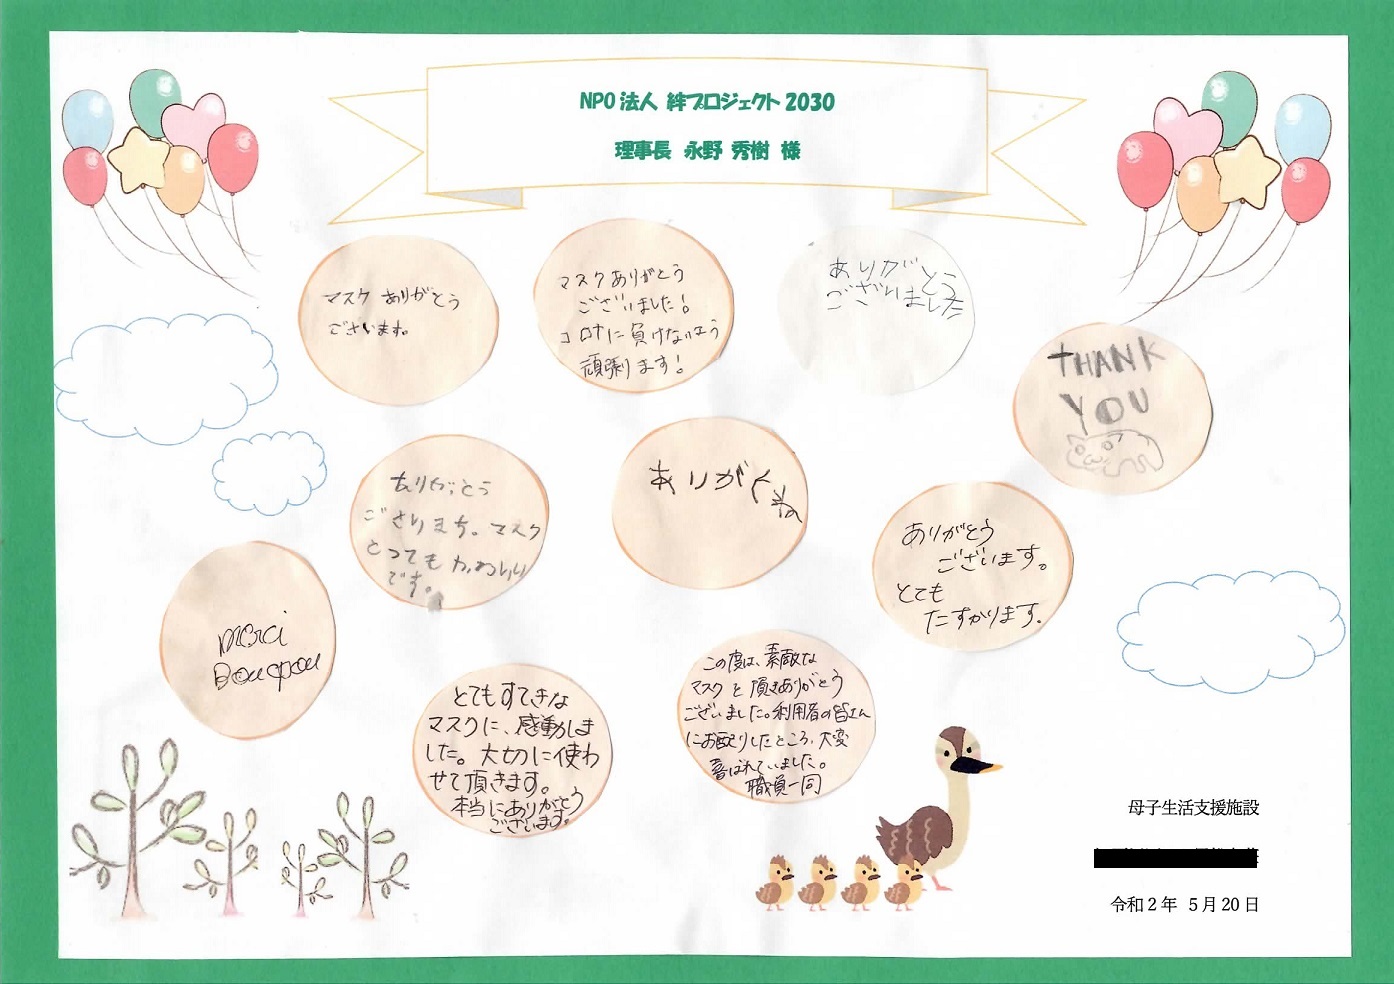 NPO法人 絆プロジェクト2030
理事長 永野 秀樹 様
マスク ありがとう
ございます。
マスクありがとう
ございました!
コロナに負けないよう
頑張ります!
ありがとう
ございました
THANK
YOU
ありがとう
ございます。マスク
とってもかわいい
です。
ありがとね
ありがとう
ございます。
とても
たすかります。
merci
Boucpou
とてもすてきな
マスクに、感動しま
した。大切に使わ
せて頂きます。
本当にありがとう
ございます。
この度は、素敵な
マスクを頂きありがとう
ございました。利用者の皆さん
にお配りしたところ、大変
喜ばれていました。
職員一同
母子生活支援施設
令和2年 5月20日